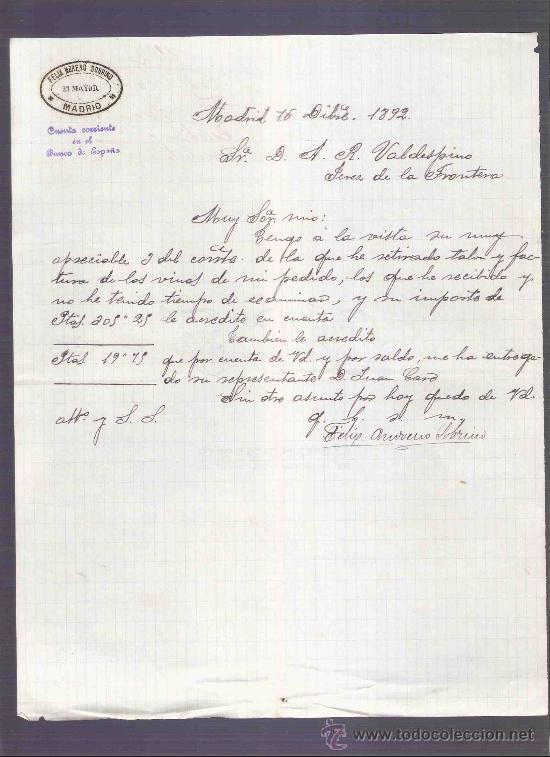 FELIX MORENO SOBRINO
21 MAYOR
MADRID
Cuenta corriente
en el
Banco de España
Madrid 16 Dibre. 1892.
Sr. D. A. R. Valdespino
Jerez de la Frontera
Muy Sor. mio:
Tengo á la vista su muy
apreciable 2 del corrte. de la que he retirado talon y fac-
tura de los vinos de mi pedido, los que he recibido y
no he tenido tiempo de ecsaminar, y su importe de
Ptas. 205"25 le acredito en cuenta
Tambien le acredito
Ptas. 19"75 que por cuenta de Vd. y por saldo, me ha entrega-
do su representante D. Juan Caro
Sin otro asunto por hoy quedo de Vd.
atto. y S. S.
q. b. s. m.
Felix Moreno Sobrino
todocoleccion
www.todocoleccion.net